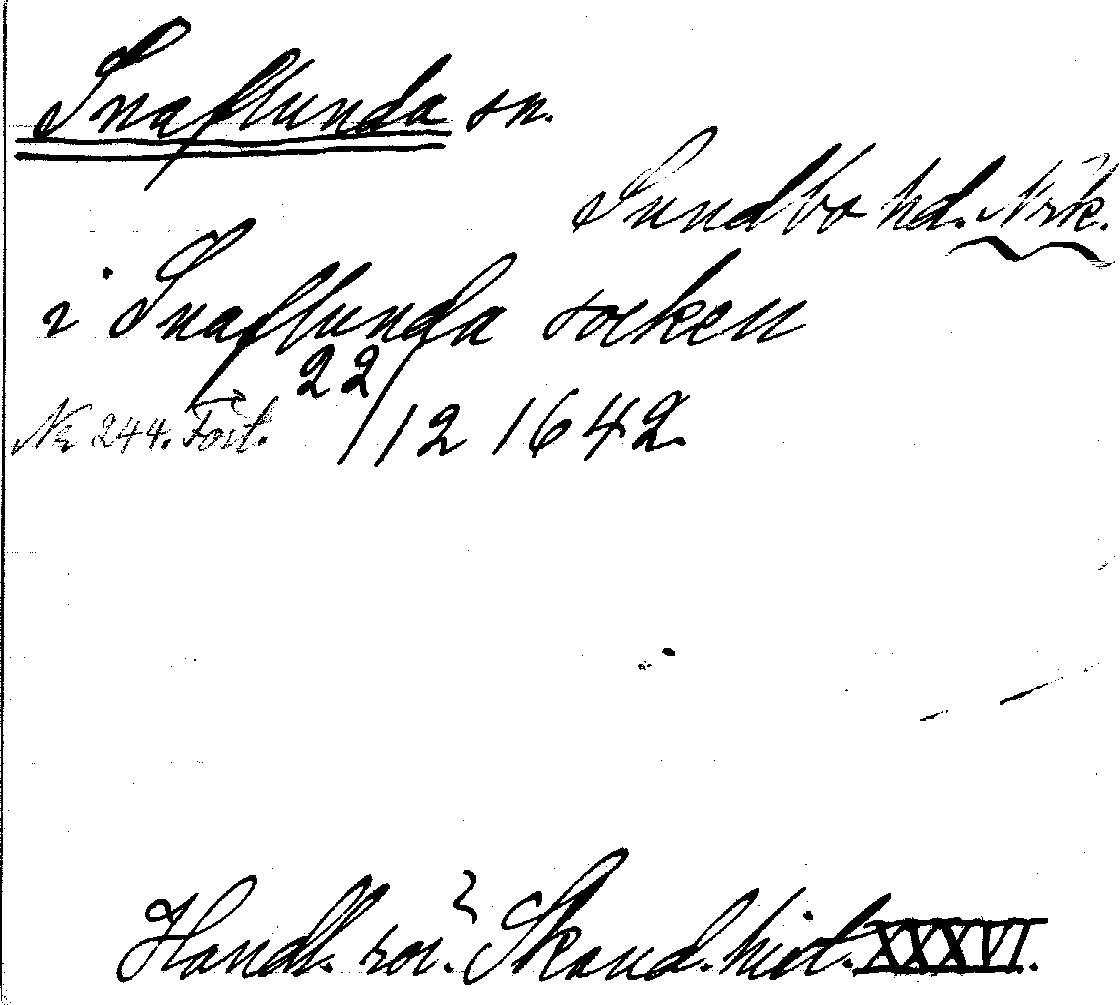 Snaflunda sn.
Sundbo hd. Nrk.
i Snaflunda socken
No 244. Fört. 22/12 1642.
Handl. rör. Skand. hist. XXXVI.